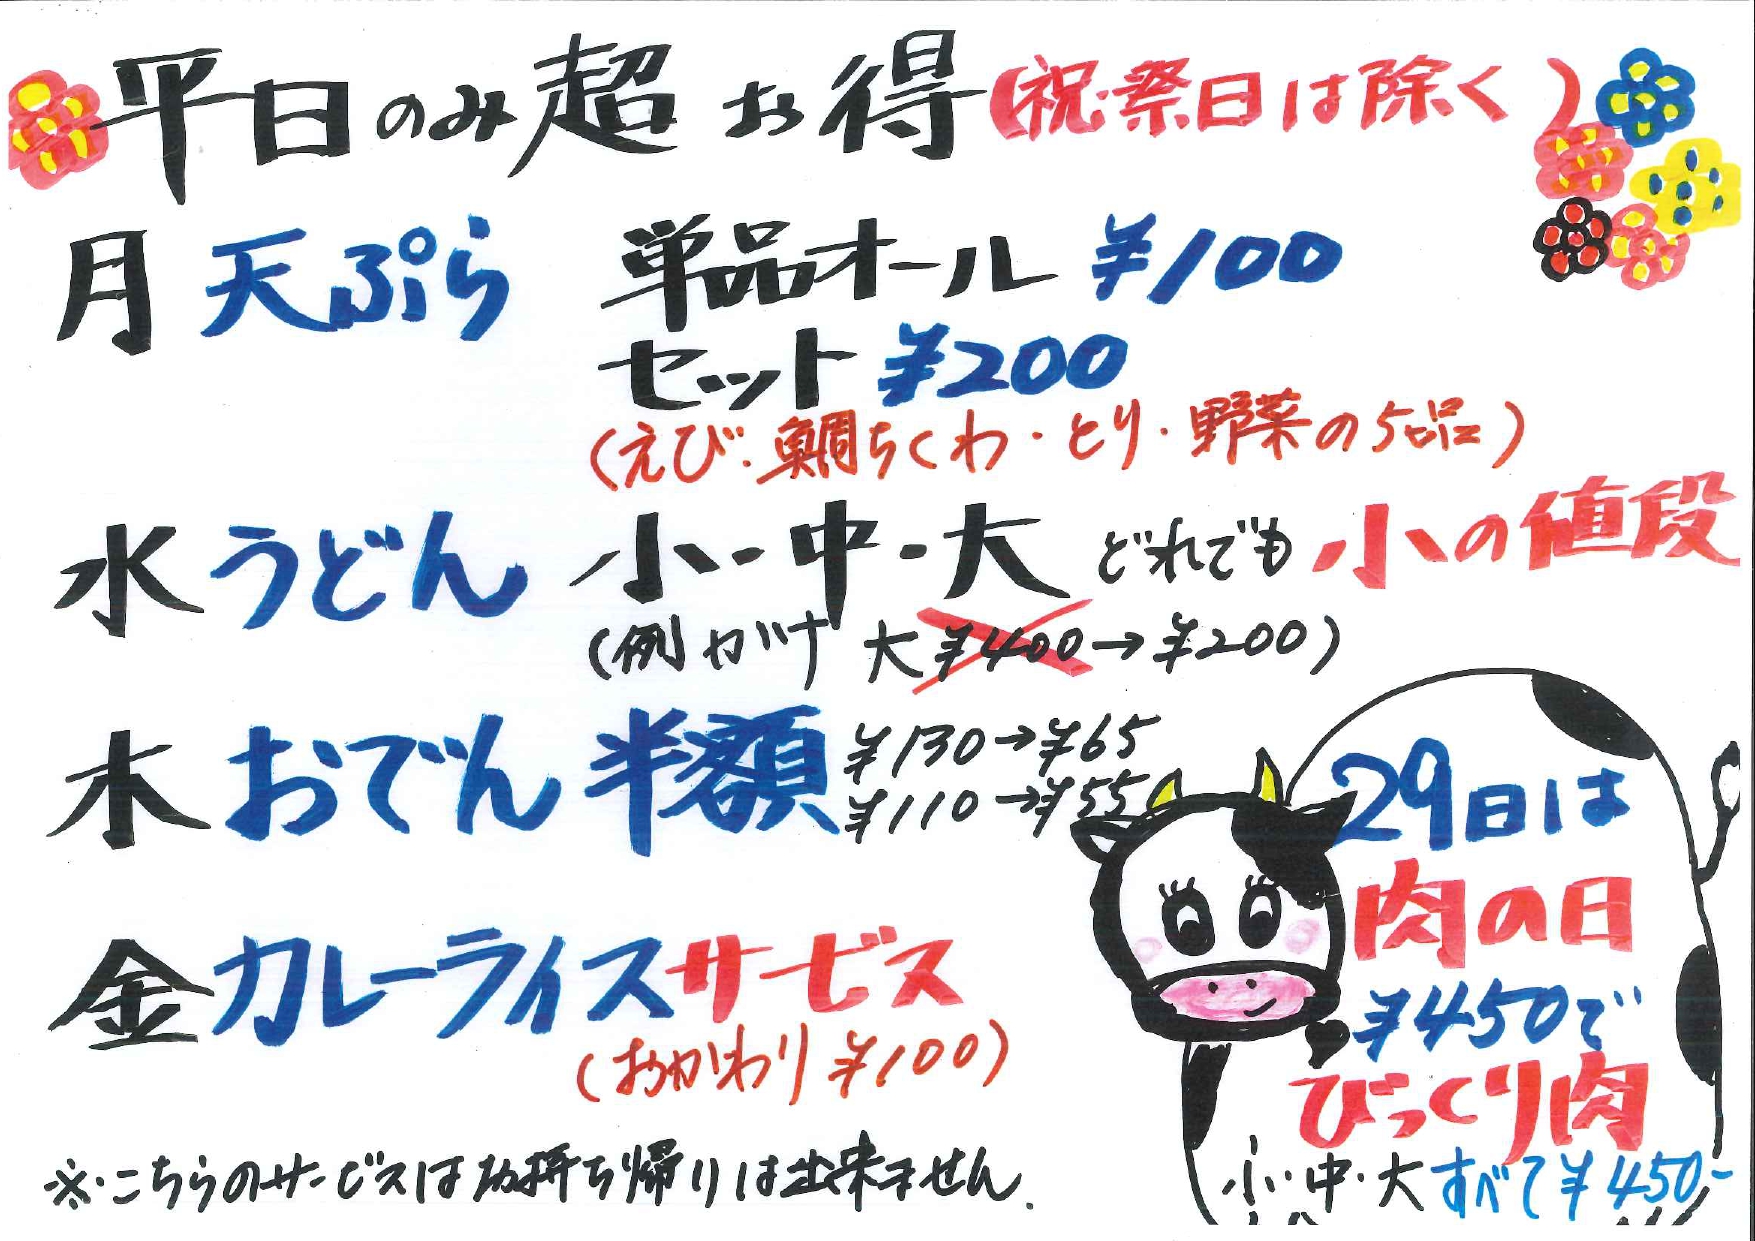 平日のみ超お得(祝・祭日は除く)
月 天ぷら 単品オール ¥100
セット ¥200
(えび・鯛ちくわ・とり・野菜の5品)
水 うどん 小・中・大 どれでも 小の値段
(例 かけ 大 ¥400→¥200)
木 おでん 半額 ¥130→¥65
¥110→¥55
金 カレーライスサービス
(おかわり ¥100)
※こちらのサービスはお持ち帰りは出来ません.
29日は
肉の日
¥450で
びっくり肉
小・中・大 すべて¥450-